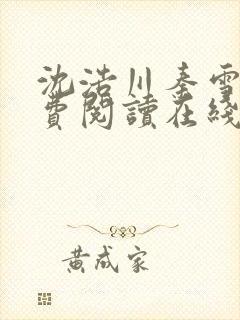 沈浩川秦雪
費閱讀在綫
黄成家